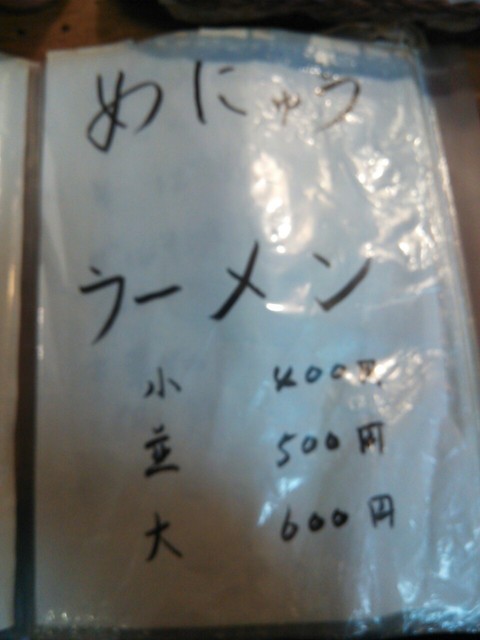 めにゅう
ラーメン
小 400円
並 500円
大 600円